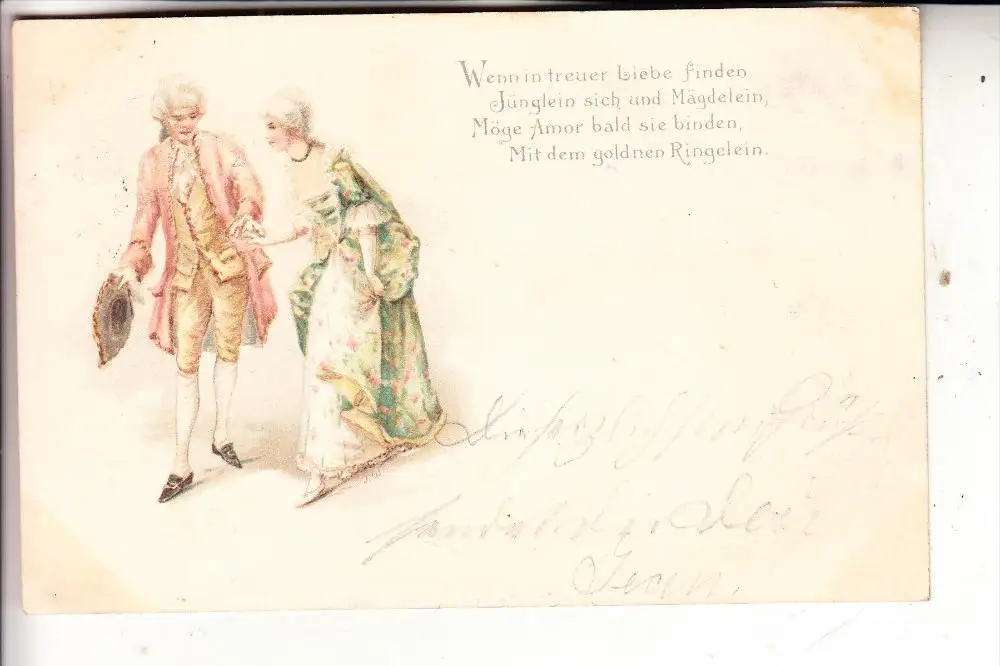 Wenn in treuer Liebe finden
Jünglein sich und Mägdelein,
Möge Amor bald sie binden,
Mit dem goldnen Ringelein.
Die herzlichsten Grüße
sendet